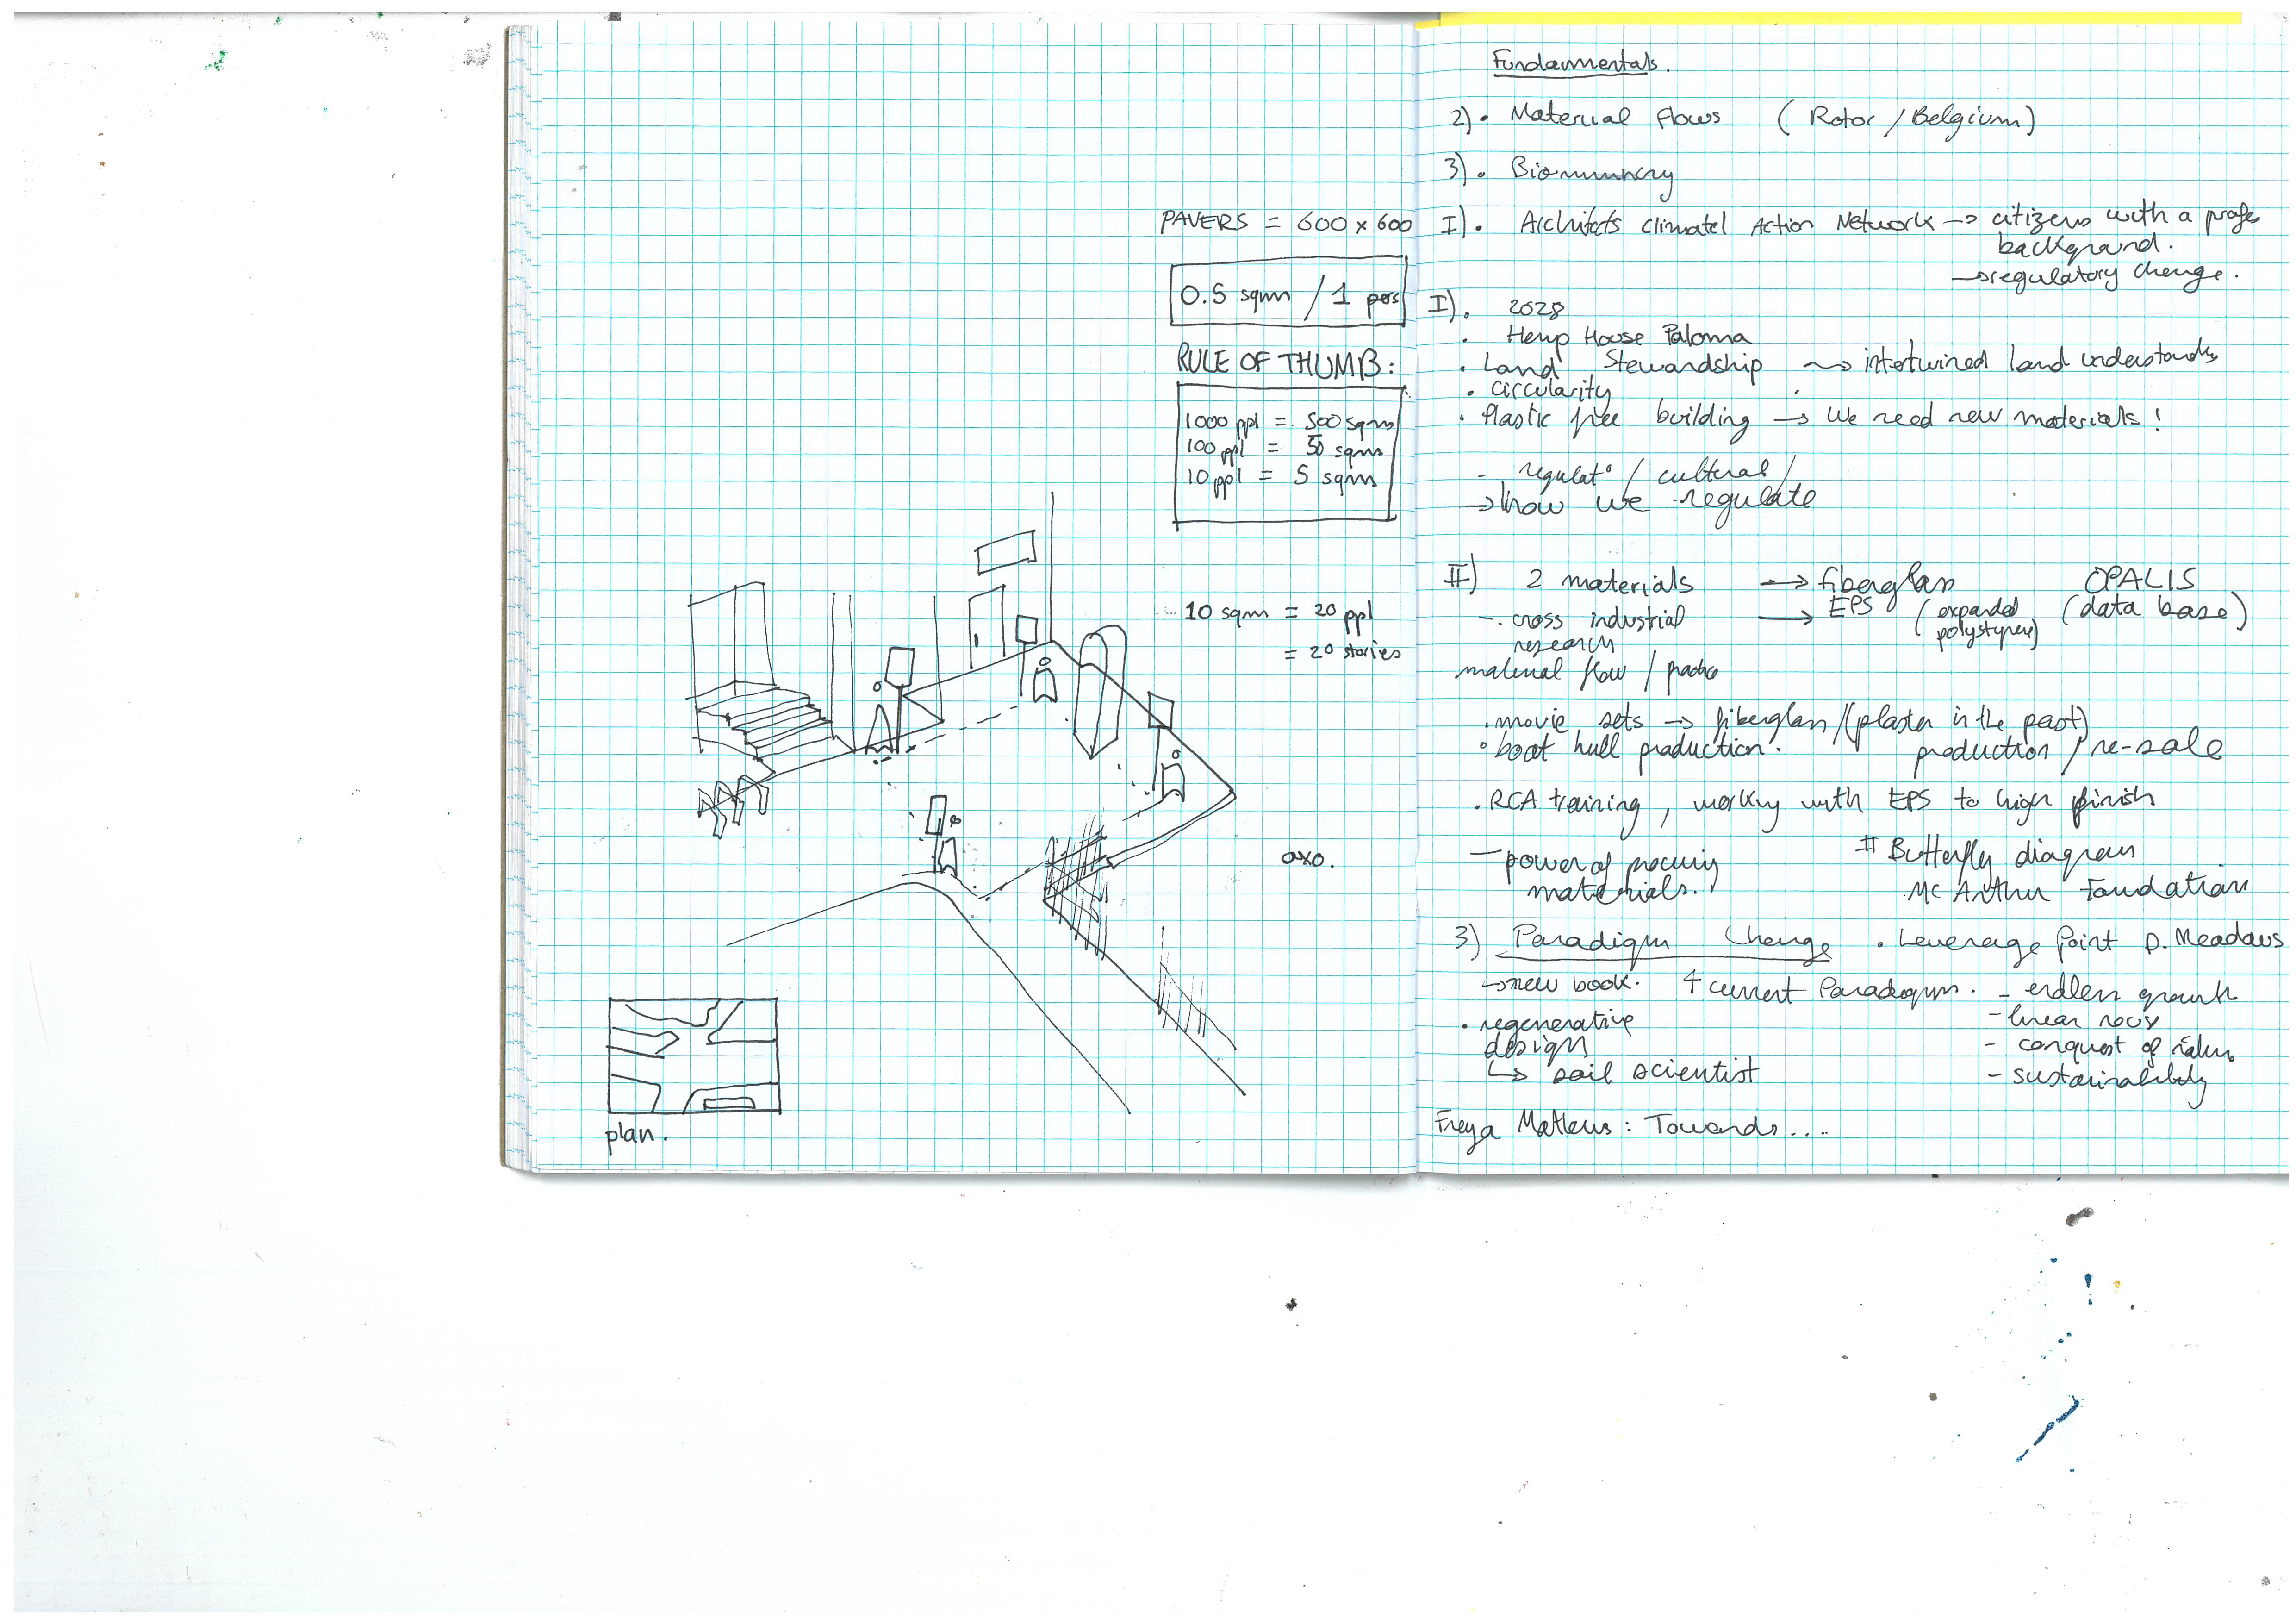 PAVERS = 600 x 600
0.5 sqm / 1 pers
RULE OF THUMB:
1000 ppl = 500 sqm
100 ppl = 50 sqm
10 ppl = 5 sqm
10 sqm = 20 ppl
= 20 stories
axo.
plan.
Fundamentals.
2). Material Flows (Rotor / Belgium)
3). Biomimicry
I). Architects Climate Action Network → citizens with a profe
background.
→ regulatory change.
I). 2028
. Hemp House Paloma
. Land Stewardship → intertwined land understands
. Circularity
. Plastic free building → We need new materials!
- regulat° / cultural /
→ how we regulate
II) 2 materials → fiberglass OPALIS
-. cross industrial → EPS (expanded (data base)
research polystyrene)
material flow / practice
. movie sets → fiberglass / (plaster in the past)
. boat hull production. production / re-sale
. RCA training, working with EPS to high finish
- power of materials.
# Butterfly diagram
Mc Arthur Foundation
3) Paradigm Change . Leverage Point D. Meadows
→ new book. 4 current Paradigm. - endless growth
- linear
. regenerative
design - conquest of
↳ soil scientist - sustainability
Freya Matheus : Towards....